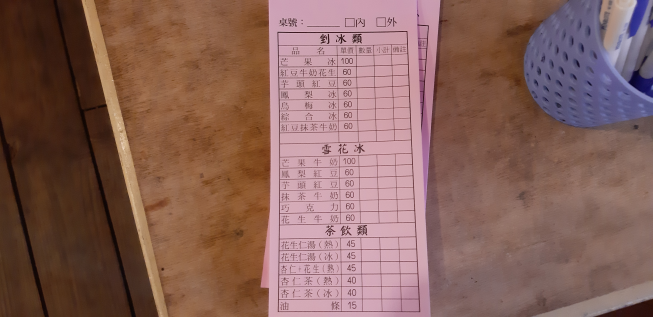 桌號：______ □內 □外
剉冰類
品名 單價 數量 小計 備註
芒果冰 100
紅豆牛奶花生 60
芋頭紅豆 60
鳳梨冰 60
烏梅冰 60
綜合冰 60
紅豆抹茶牛奶 60
雪花冰
芒果牛奶 100
鳳梨紅豆 60
芋頭紅豆 60
抹茶牛奶 60
巧克力 60
花生牛奶 60
茶飲類
花生仁湯(熱) 45
花生仁湯(冰) 45
杏仁+花生(熱) 45
杏仁茶(熱) 40
杏仁茶(冰) 40
油條 15